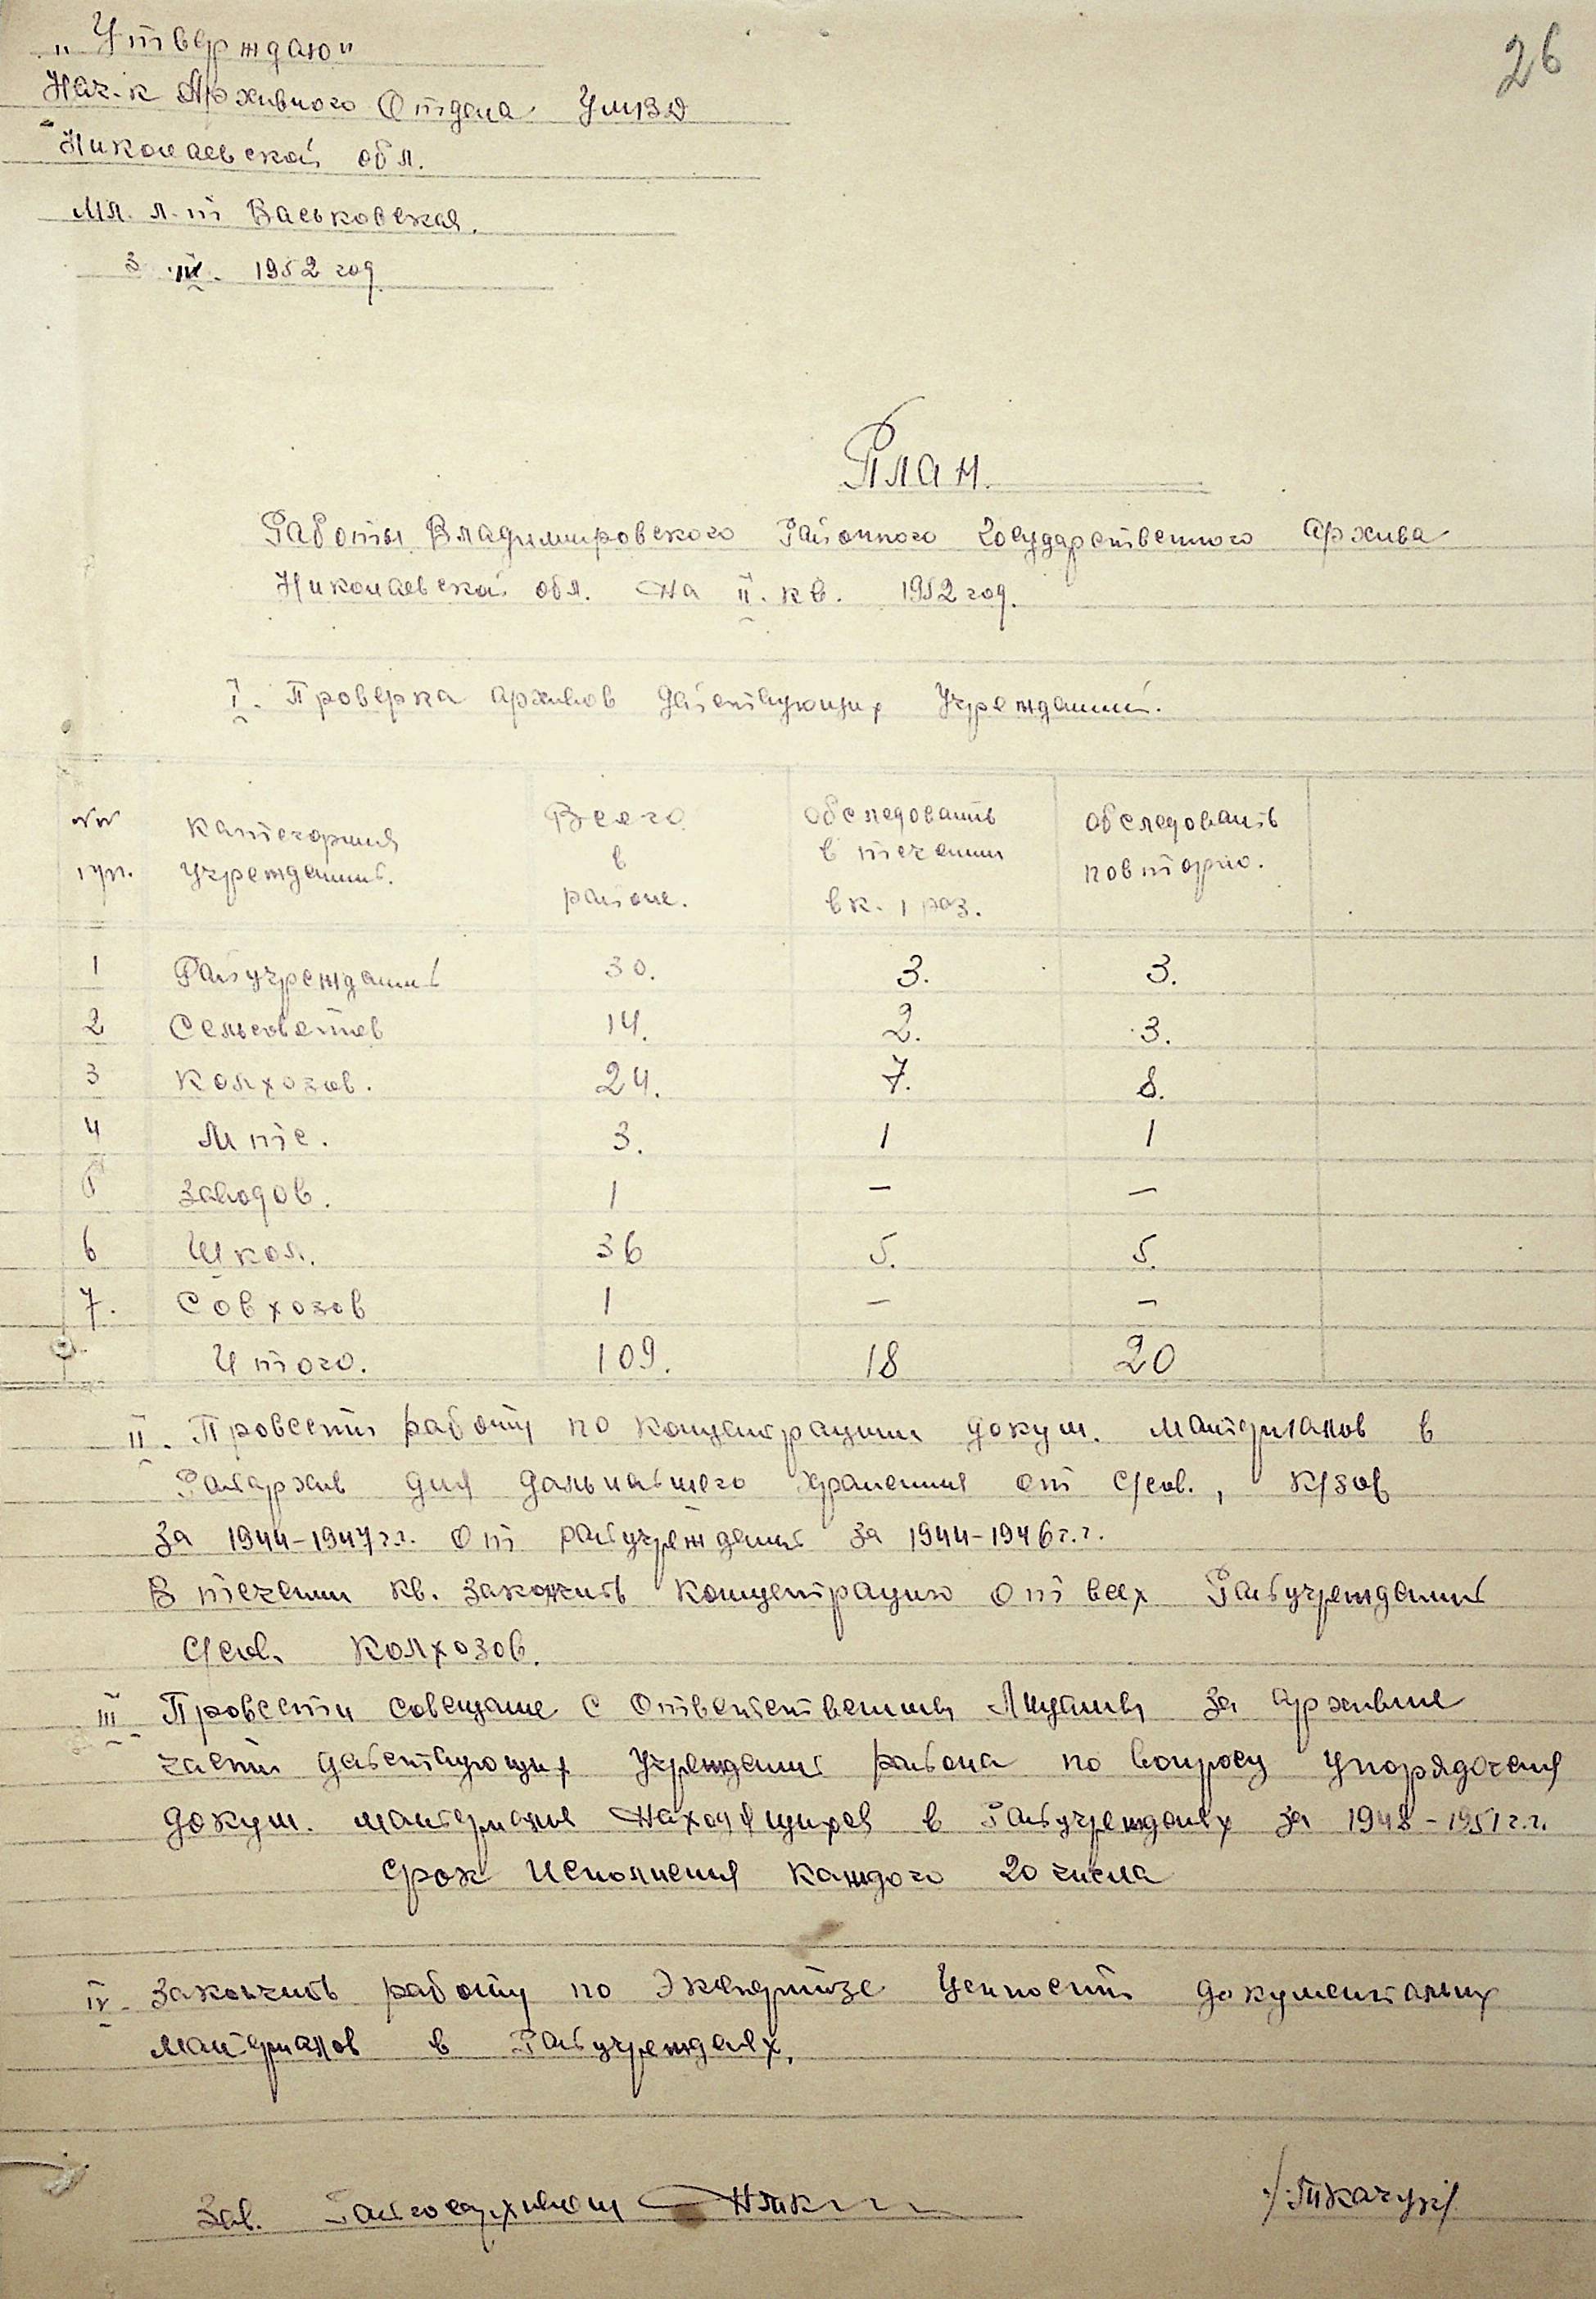 26
„Утверждаю"
Нач-к Архивного Отдела УМВД
Николаевской обл.
Мл. л-т Васьковская.
3 III. 1952 год
План.
Работы Владимировского Районного Государственного Архива
Николаевской обл. На II. кв. 1952 год.
I. Проверка архивов действующих Учреждений.
№№ категория Всего обследовать обследовать
п/п. учреждений. в в течении повторно.
районе. в к. 1 раз.
1 Райучреждений 30. 3. 3.
2 Сельсоветов 14. 2. 3.
3 Колхозов. 24. 7. 8.
4 Мтс. 3. 1 1
5 Заводов. 1 — —
6 Школ. 36 5. 5.
7. Совхозов 1 — —
Итого. 109. 18 20
II. Провести работу по концентрации докум. материалов в
Райархив для дальнейшего хранения от с/сов., к/зов
за 1944-1947 г.г. От райучреждений за 1944-1946 г.г.
В течении кв. закончить концентрацию от всех Райучреждений
с/сов. Колхозов.
III Провести совещание с Ответственными Лицами за архивные
части действующих Учреждений района по вопросу упорядочения
докум. материалов Находящихся в Райучреждениях за 1948-1951 г.г.
Срок Исполнения каждого 20 числа
IV. Закончить работу по Экспертизе Ценности документальных
материалов в Райучреждениях.
Зав. Райгосархивом /Ткачук/